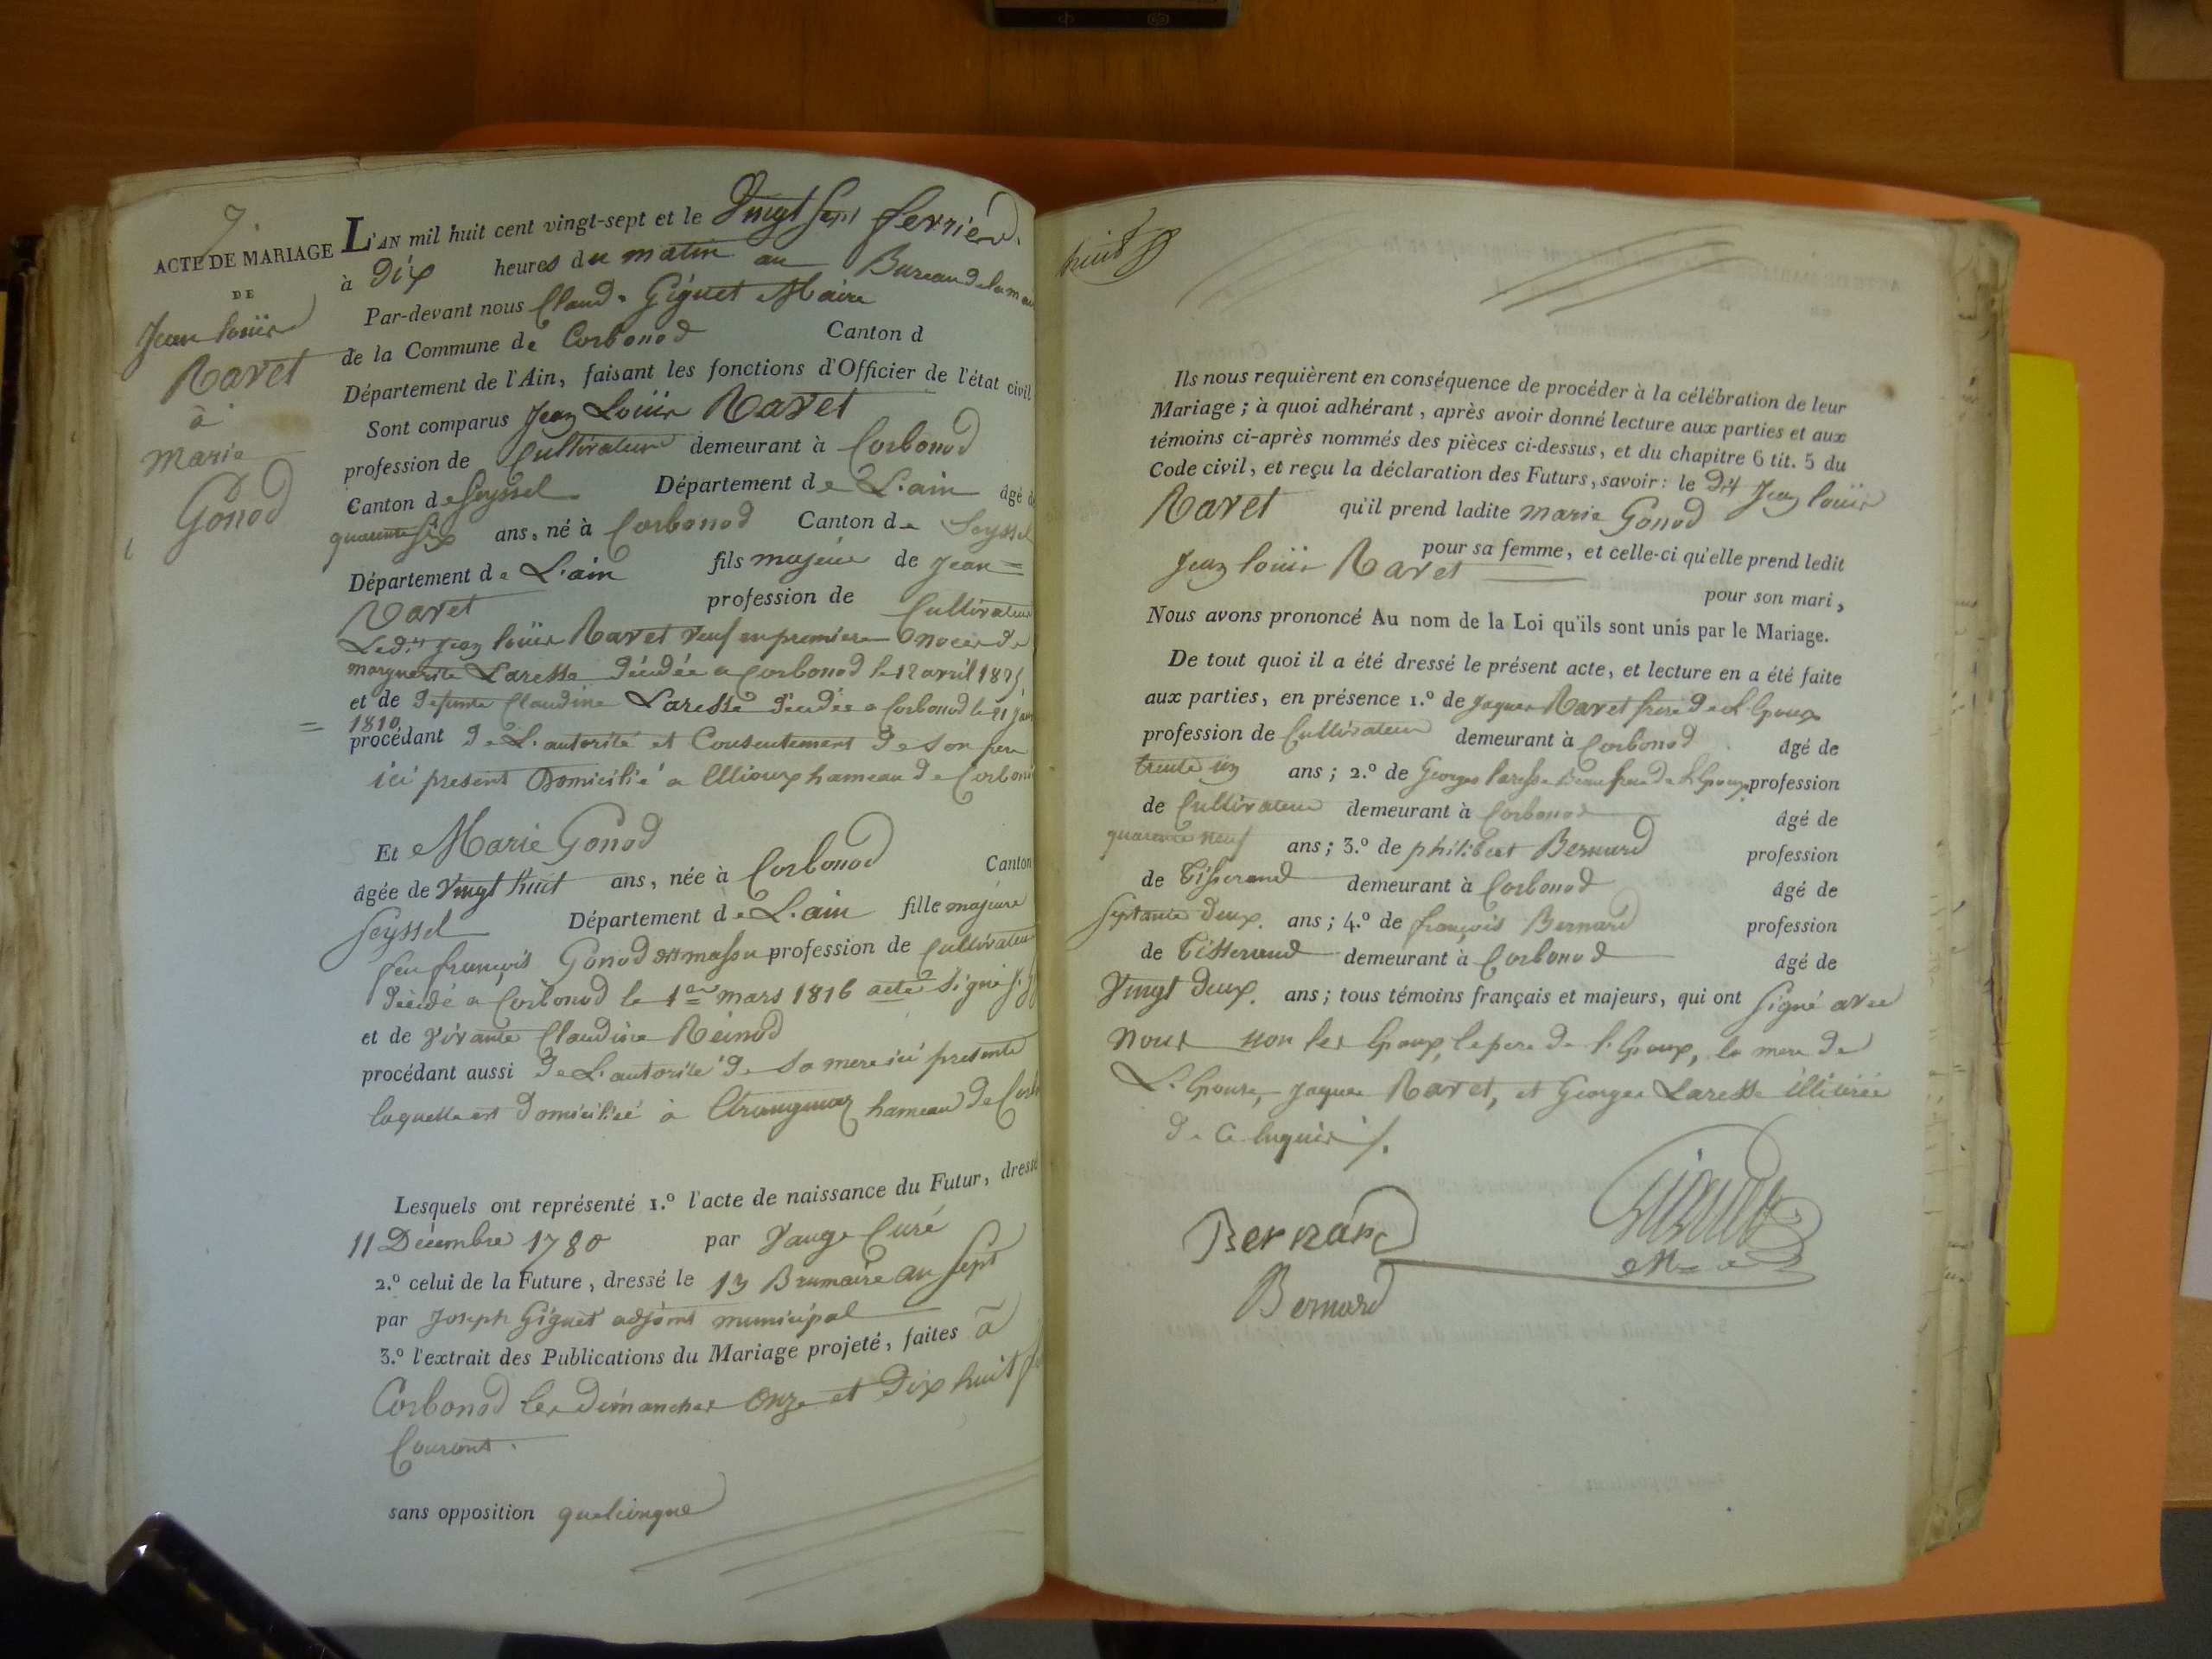 7.
ACTE DE MARIAGE
DE
Jean Louis
Ravet
à
Marie
Gonod
L'AN mil huit cent vingt-sept et le Vingt Sept fevrier.
à dix heures du matin au Bureau de la
Par-devant nous Claude Giguet Maire
de la Commune de Corbonod Canton d
Département de l'Ain, faisant les fonctions d'Officier de l'état civil
Sont comparus Jean Louis Ravet
profession de Cultivateur demeurant à Corbonod
Canton de Seyssel Département de L'ain âgé de
quarante Six ans, né à Corbonod Canton de Seyssel
Département de L'ain fils majeur de Jean =
Ravet profession de Cultivateur
Ledit Jean Louis Ravet veuf en premiere noces de
marguerite Laresse décédée a Corbonod le 12 avril 1825,
et de defunte Claudine Laresse décédée a Corbonod le 21
= 1810
procédant de L'autorité et Consentement de son pere
ici present Domicilié a hameau de Corbonod
Et Marie Gonod
âgée de vingt huit ans, née à Corbonod Canton
Seyssel Département de L'ain fille majeure
feu françois Gonod dit masson profession de Cultivateur
décédé a Corbonod le 1er mars 1816 acte signé
et de vivante Claudine Reinod
procédant aussi de L'autorité de sa mere ici presente
laquelle est domiciliée à hameau de
Lesquels ont représenté 1.º l'acte de naissance du Futur, dressé
11 Décembre 1780 par Vauge Curé
2.º celui de la Future, dressé le 13 Brumaire an Sept
par Joseph Giguet adjoint municipal
3.º l'extrait des Publications du Mariage projeté, faites à
Corbonod les dimanches onze et dix huit
Courant.
sans opposition quelcinque
huit
Ils nous requièrent en conséquence de procéder à la célébration de leur
Mariage ; à quoi adhérant, après avoir donné lecture aux parties et aux
témoins ci-après nommés des pièces ci-dessus, et du chapitre 6 tit. 5 du
Code civil, et reçu la déclaration des Futurs, savoir : le dit Jean Louis
Ravet qu'il prend ladite marie Gonod
pour sa femme, et celle-ci qu'elle prend ledit
Jean Louis Ravet
pour son mari,
Nous avons prononcé Au nom de la Loi qu'ils sont unis par le Mariage.
De tout quoi il a été dressé le présent acte, et lecture en a été faite
aux parties, en présence 1.º de Jaques Ravet frere de L'Epoux
profession de Cultivateur demeurant à Corbonod âgé de
trente un ans ; 2.º de Georges Laresse Beau frere de L'Epoux profession
de Cultivateur demeurant à Corbonod âgé de
quarante neuf ans ; 3.º de philibert Bernard profession
de Tisserand demeurant à Corbonod âgé de
septante deux. ans ; 4.º de françois Bernard profession
de Tisserand demeurant à Corbonod âgé de
Vingt deux. ans ; tous témoins français et majeurs, qui ont Signé avec
Nous non les Epoux, le pere de l'Epoux, la mere de
L'Epouse, Jaques Ravet, et Georges Laresse illitérée
de ce Enquis /.
Bernard
Bernard